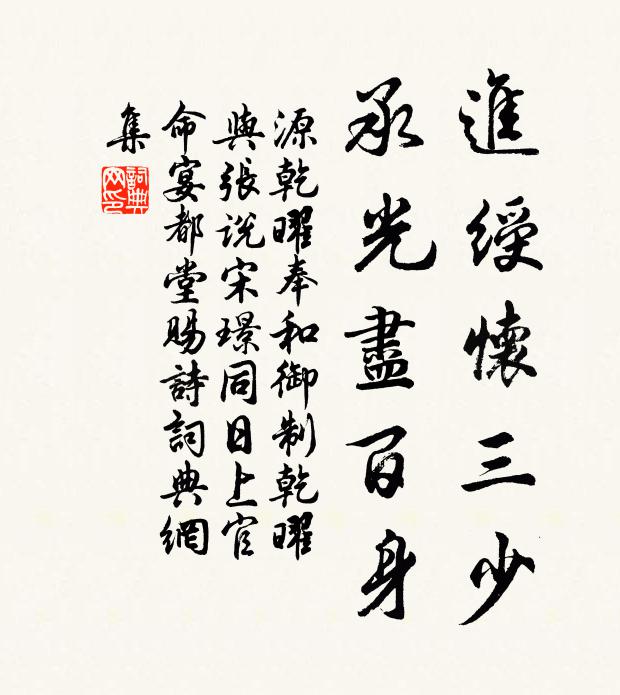 進綬懷三少
承光盡百身
源乾曜奉和御制乾曜
與張說宋璟同日上官
命宴都堂賜詩詞典網
集
詞典網印